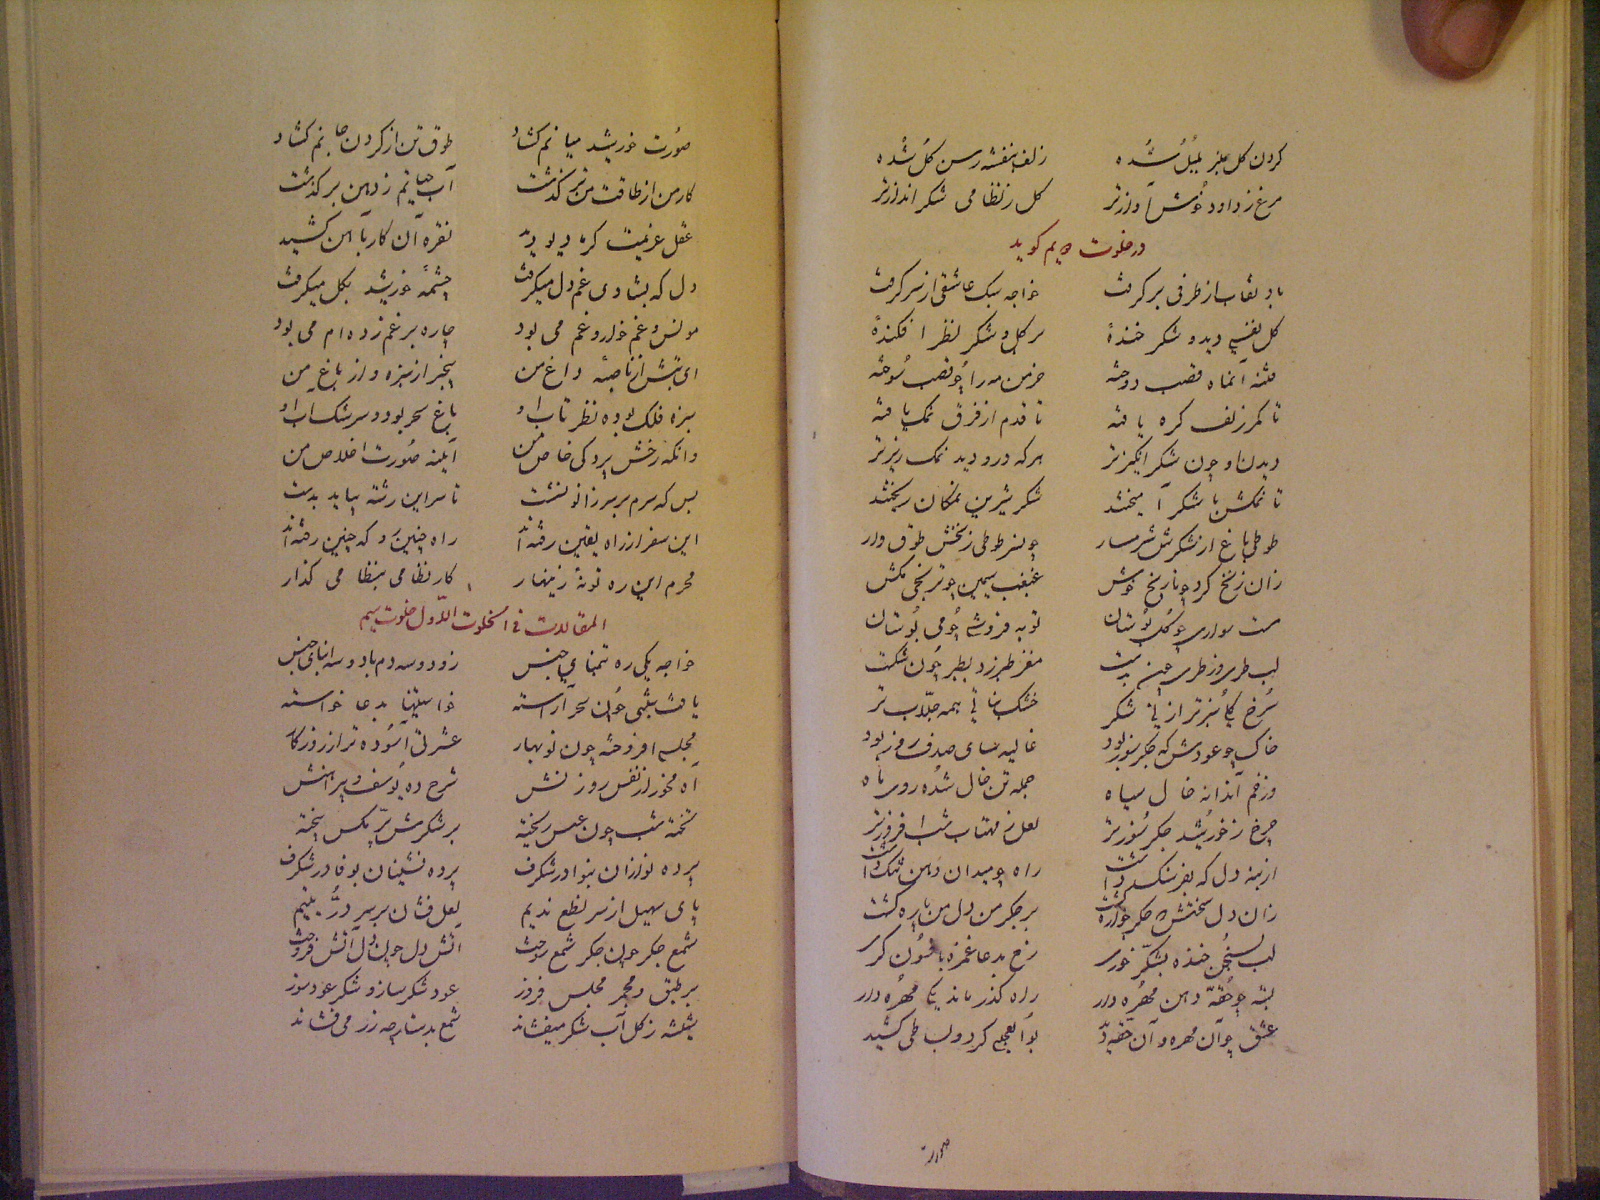 گردن گل منبر بلبل شده    زلف بنفشه رسن گل شده
مرغ ز داود خوش آوازتر    گل ز نظامی شکر اندازتر
در خلوت دویم گوید
باد نقاب از طرفی برگرفت    خواجه سبک عاشقی از سر گرفت
گل نفسی دید و شکر خندهٔ    بر گل و شکر نظر افکندهٔ
فتنه آنماه قصب دوخته    خرمن مه را چو قصب سوخته
تا کمر زلف گره یافته    تا قدم از فرق نمک یافته
دیدن او چون شکر انگیزتر    هرکه درو دید نمک ریزتر
تا نمکش با شکر آمیختند    شکر شیرین نمکان ریختند
طوطی باغ از شکرش شرمسار    چون سر طوطی زنخش طوق دار
زان زنخ گرد چو نارنج خوش    غبغب سیمین چو ترنجی بکش
مست نوازی چو گل بوستان    توبه فروشی چو می بوستان
لب طبرزد    مغز طبرزد بطبر خون شکست
سرخ گلی سبزتر از نی شکر    خشک نباتی همه جلاب تر
خاک چو عودش که جگر سوز بود    غالیه سای صدف روز بود
وز غم آندانه خال سیاه    جمله تن خال شده روی ماه
چرخ ز خورشید جگر سوزتر    لعل ز مهتاب شب افروزتر
از بنه دل که بفرسنگ داشت    راه چو میدان دهن تنگ داشت
زان دل سختش که جگر خواره گشت    بر جگر من دل من پاره گشت
لب بسخن خنده بشکر خوری    رخ بدعا غمزه بافسون گری
بسته چو حقه دهن مهره دار    راه گذر مانده یک مهره دار
عشق چو آن مهره و آن حقه دید    بوالعجبی کرد و بساطی کشید
صورت
صورت خورشید میانم گشاد    طوق تن از گردن جانم گشاد
کار من از طاقت من در گذشت    آب حیاتم ز دهن بر گذشت
عقل عزیمت گر ما دیو دید    نقره آن کار بآهن کشید
دل که بشادی غم دل میگرفت    چشمهٔ خورشید بگل میگرفت
مونس غم خواره غم می بود    چاره بر غم زده ام می بود
ای تبش از ناصیهٔ داغ من    بیخبر از سبزه و از باغ من
سبزه فلک بوده نظر تاب او    باغ سحر بود و سرشک آب او
وانکه رخش پردگی خاص من    آینه صورت اخلاص من
بس که سرم بر سر زانو نشست    تا سر این رشته بیاید بدست
این سفر از راه یقین رفته‌اند    راه چنین رو که چنین رفته‌اند
محرم این ره تو نهٔ زینهار    کار نظامی بنظامی گذار
المقالات فی الخلوت الاول خلوت سیم
خواجه یکی ره بتمنای جنس    زد دو سه دم با دو سه ابنای جنس
یافت شبی چون سحر آراسته    خواسته‌ها بدعا خواسته
مجلسی افروخته چون نوبهار    عشرتی آسوده تر از روزگار
آه بخور از نفس روزنش    شرح ده یوسف و پیراهنش
شحنه شب خون عسس ریخته    بر شکرش پر مگس بیخته
پرده نوازان بنوا در شگرف    پرده نشینان بوفا در شگرف
پای سهیل از سر نطع ندیم    لعل فشان بر سر در یتیم
شمع جگر چون جگر شمع سوخت    آتش دل چون دل آتش فروخت
بر طبق و مجمر مجلس فروز    عود شکر ساز و شکر عود سوز
شیشه ز گل آب شکر میفشاند    شمع بدستارچه زر می فشاند